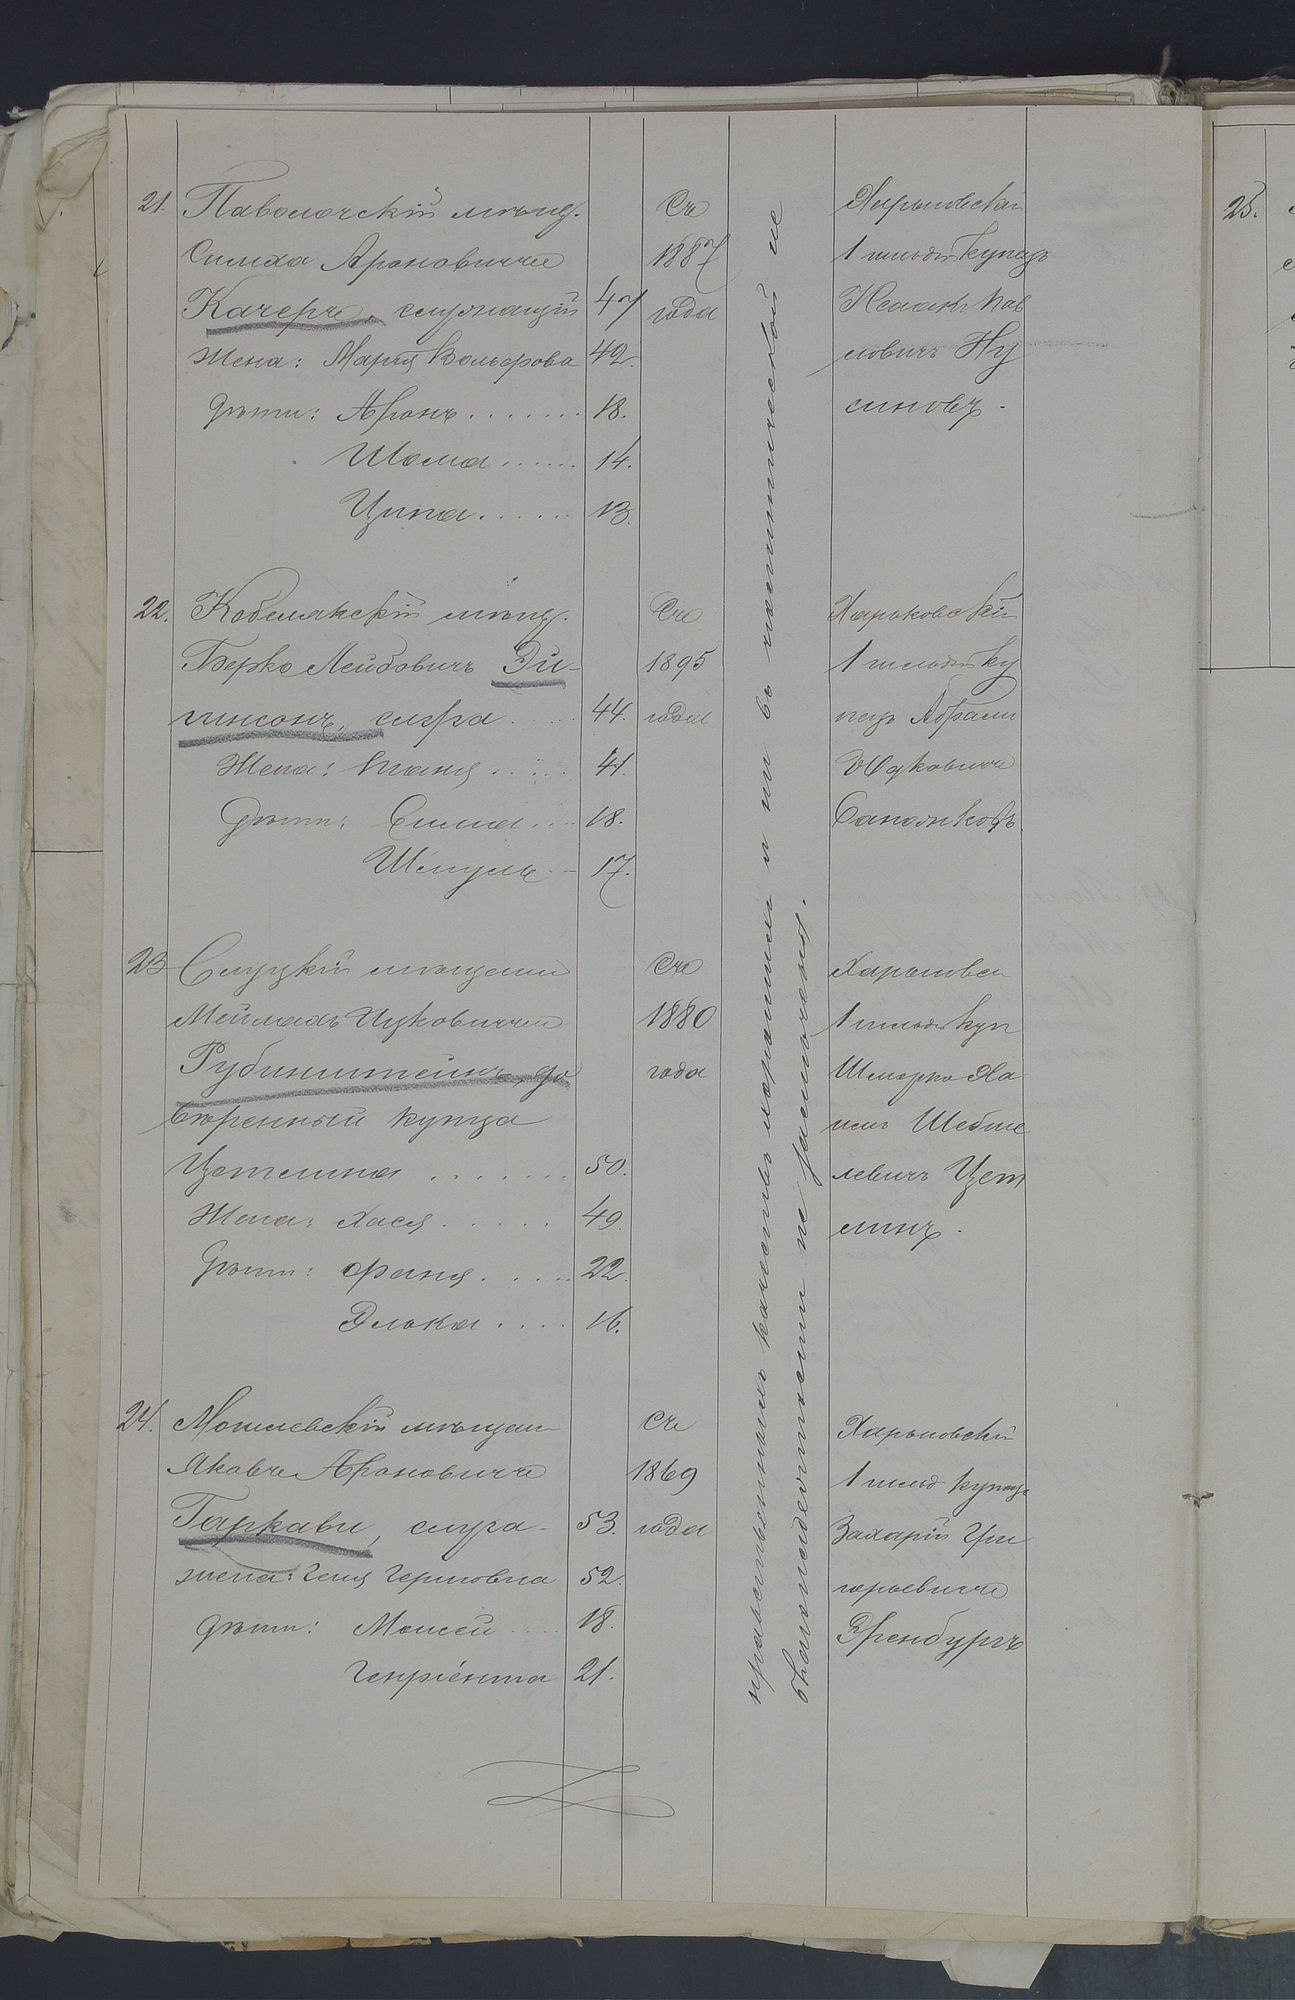 21. Паволочскій мѣщ.
Симха Ароновичъ
Качеръ, служащій 47
Жена: Марія Вольфова 42.
дѣти: Аронъ....... 18.
Шома...... 14.
Ципа...... 13.
Съ
1887
года
Харьковскій
1 гильдіи Купецъ
Исаакъ Пав
ловичъ Ну
синовъ.
22. Кобелякскій мѣщ.
Берко Лейбовичъ Эй-
гинсонъ, слуга..... 44.
Жена: Маня..... 41.
Дѣти: Сима.... 18.
Шмуль.. 17.
Съ
1895
года
Харьковскій
1 гильдіи Ку
пецъ Абрамъ
Юдковичъ
Сапожковъ
23 Слуцкій мѣщанин
Меиладъ Ицковичъ
Рубинштейнъ, до
вѣренный купца
Цетлина....... 50.
Жена: Хася...... 49.
Дѣти: Фаня..... 22.
Элька.... 16.
Съ
1880
года
Харьковск
1 гильдіи Куп
Шмерко Ха
имъ Шевше
левичъ Цет
линъ.
24. Могилевскій мѣщан
Яковъ Ароновичъ
Гаркави, слуга- 53.
жена: Геня Герцовна 52.
дѣти: Моисей.... 18.
Генріетта 21.
Съ
1869
года
Харьковскій
1 гильд купецъ
Захарій Гри
горьевичъ
Эренбургъ
нравственныхъ качествъ хорошихъ и ни въ политической не
благонадежности не замѣчены.
25.